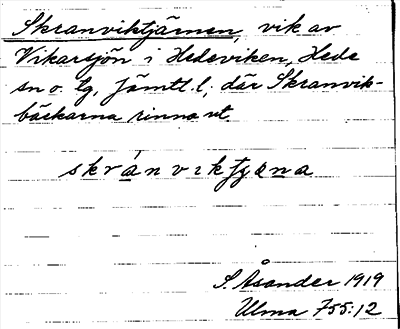 Skranviktjärnen, vik av
Vikarsjön i Hedeviken, Hede
sn o. tg, Jämtl. l; där Skranvik-
bäckarna rinna ut.
skránviktjæna
S. Åsander 1919
Ulma 755:12